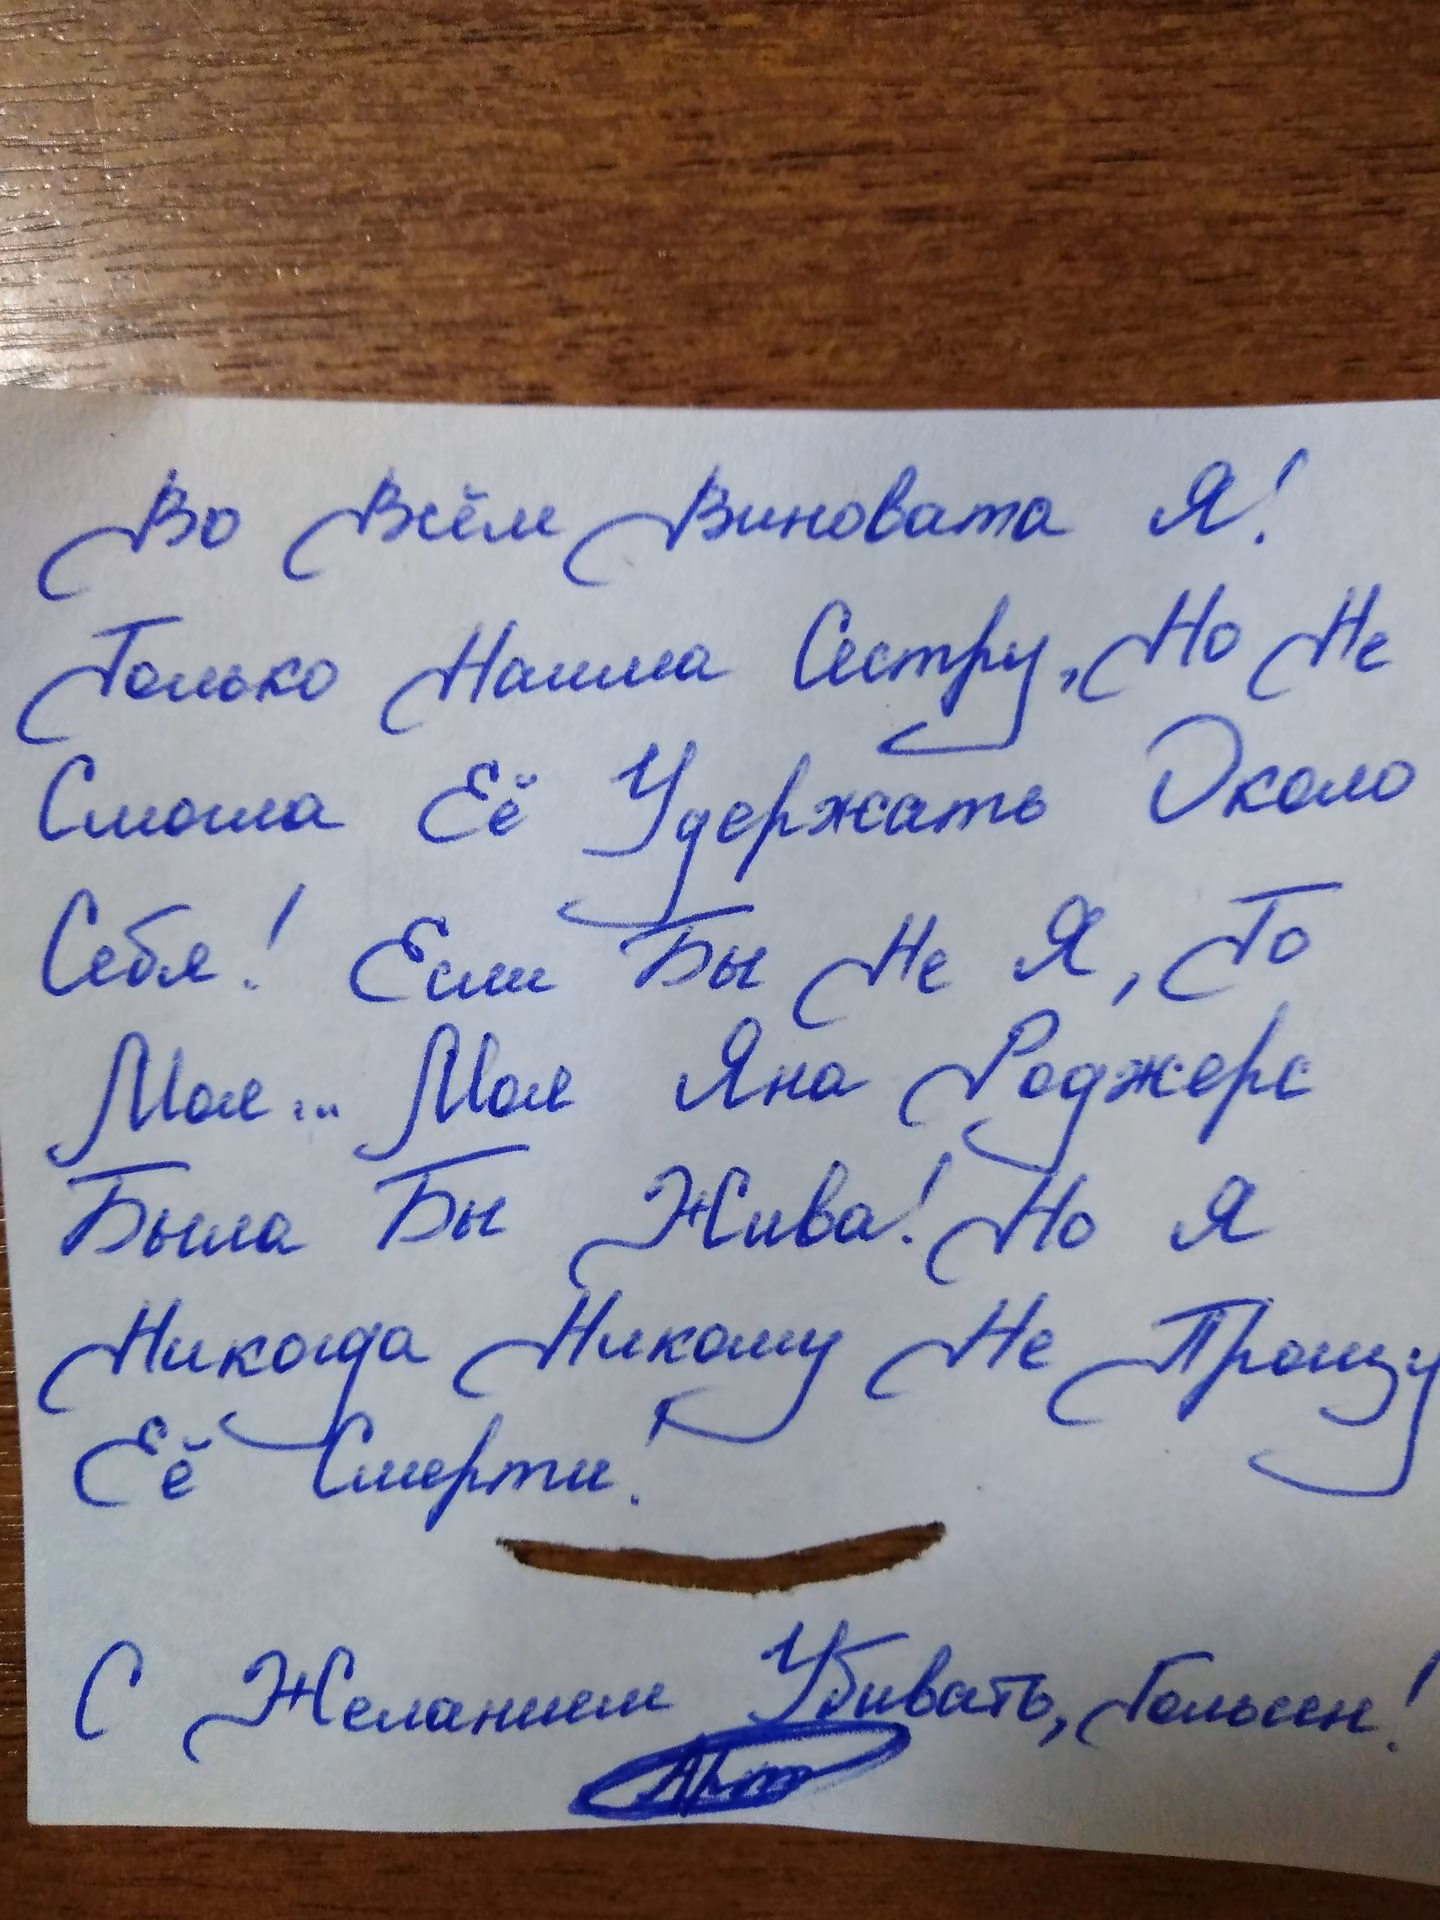 Во Всём Виновата Я!
Только Нашла Сестру, Но Не
Смогла Её Удержать Около
Себя! Если Бы Не Я, То
Моя... Моя Яна Роджерс
Была Бы Жива! Но Я
Никогда Никому Не Прощу
Её Смерти!
С Желанием Убивать,